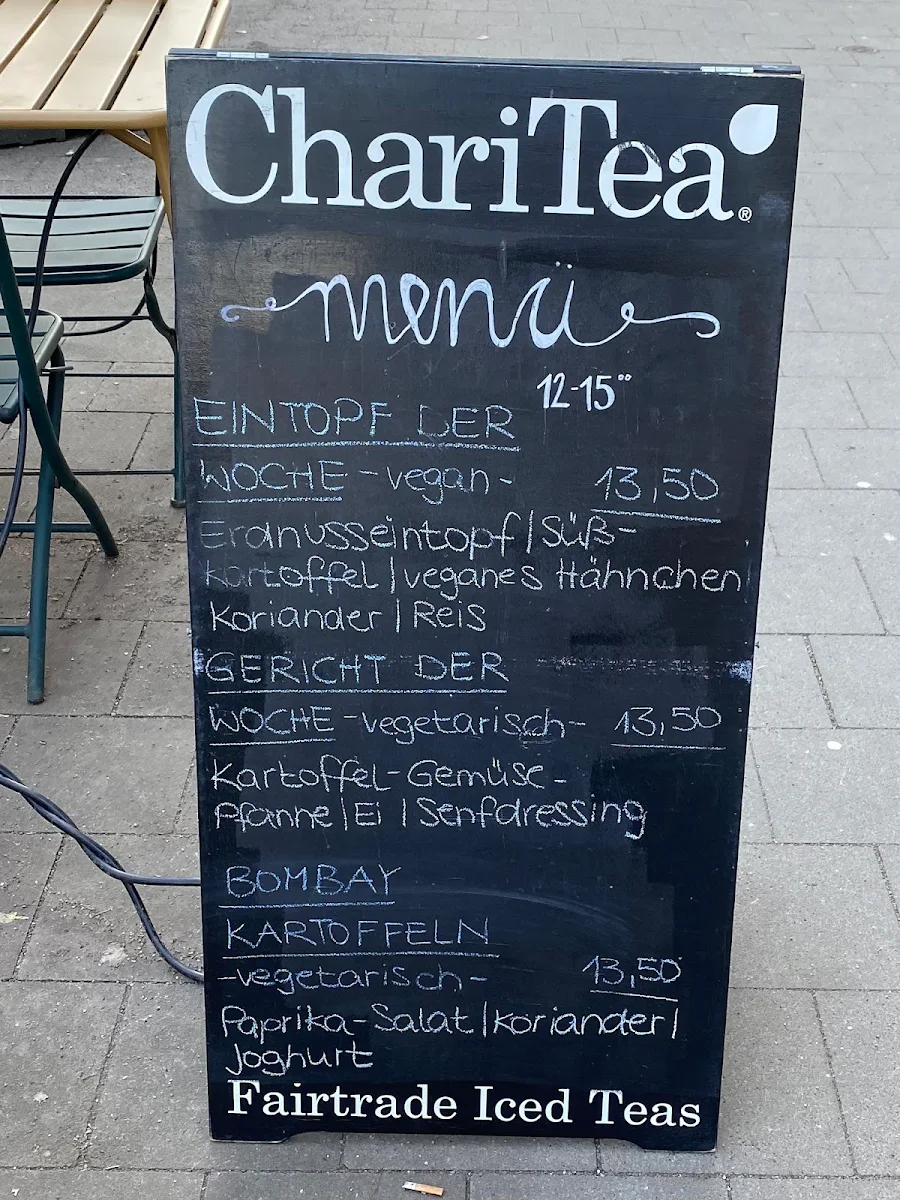 ChariTea®
menü
12-15°°
EINTOPF DER
WOCHE - vegan - 13,50
Erdnusseintopf | Süß-
kartoffel | veganes Hähnchen
Koriander | Reis
GERICHT DER
WOCHE - vegetarisch - 13,50
Kartoffel-Gemüse-
Pfanne | Ei | Senfdressing
BOMBAY
KARTOFFELN
- vegetarisch - 13,50
Paprika-Salat | Koriander |
Joghurt
Fairtrade Iced Teas